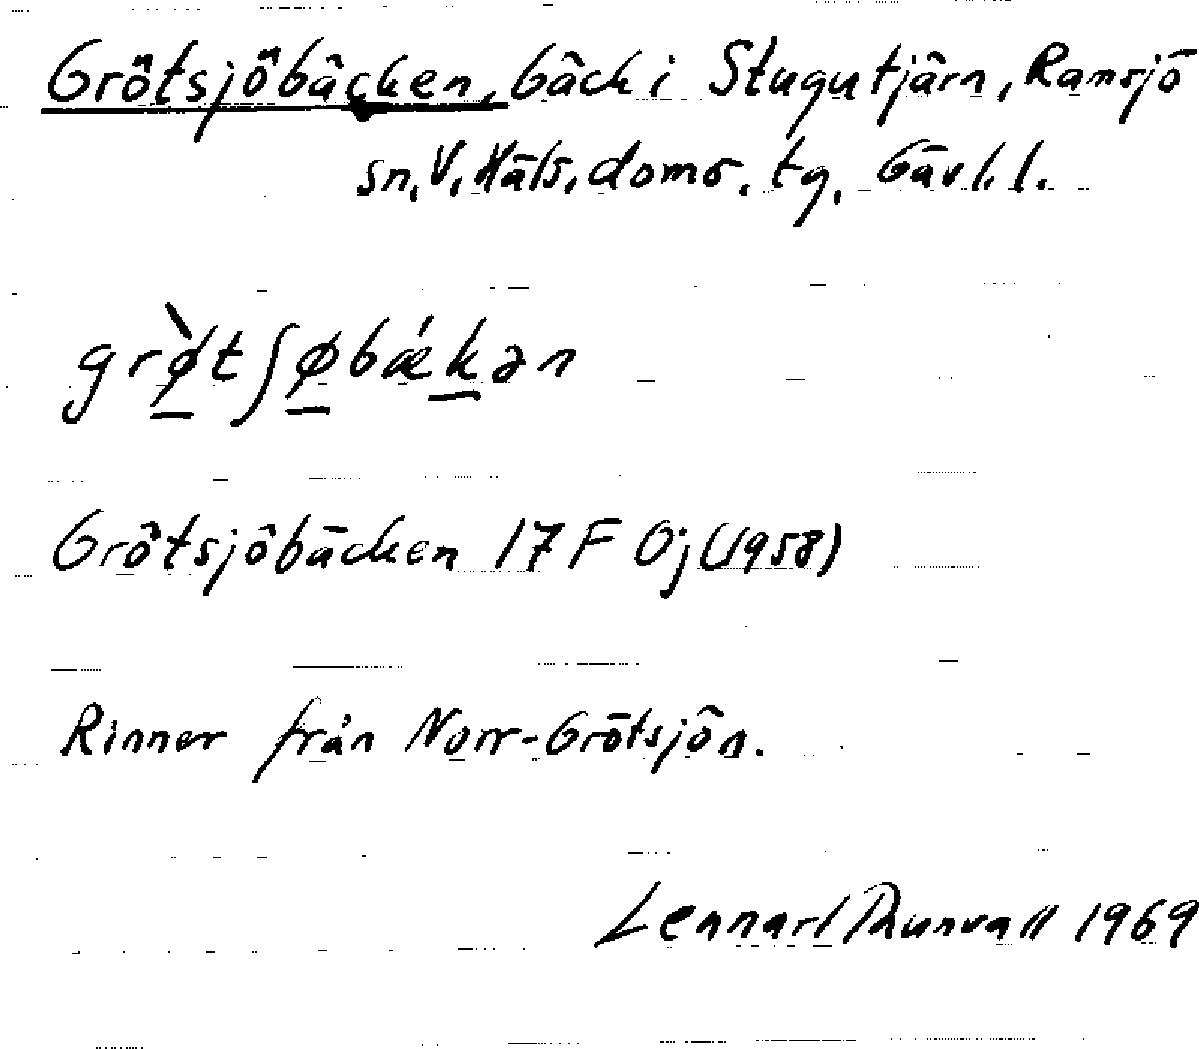 Grötsjöbäcken, bäck i Stugutjärn, Ramsjö
sn, V. Häls. doms. tg. Gävl. l.
grø̀tʃøbǽkən
Grötsjöbäcken 17 F Oj (1958)
Rinner från Norr-Grötsjön.
Lennart Thunvall 1969